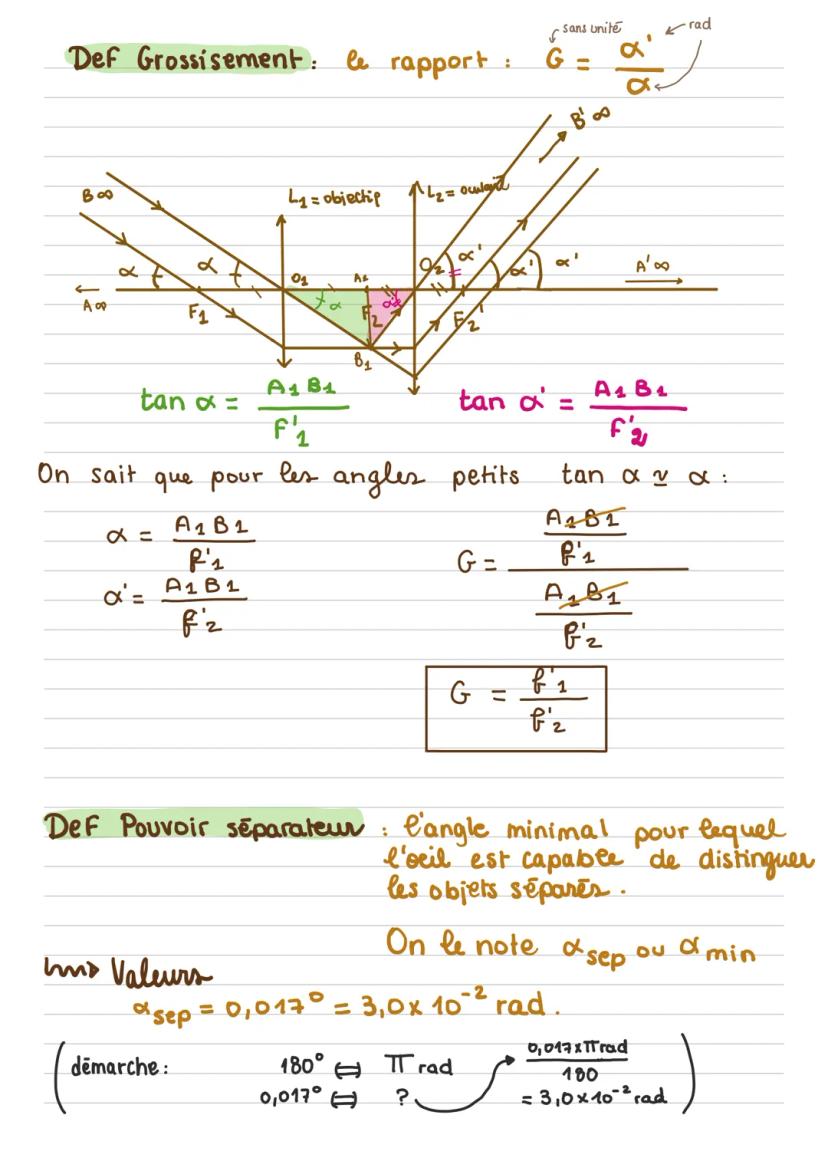 sans unité
rad
Def Grossisement : le rapport : G = α' / α
B'∞
B∞
L1 = objectif
L2 =
α α O1 A1 O2 α' α' α' A'∞
α α'
A∞
F1 F2 F2'
B1
tan α = A1B1 / F'1 tan α' = A1B1 / F'2
On sait que pour les angles petits tan α ≃ α :
α = A1B1 / f'1
α' = A1B1 / f'2
G = (A1B1 / f'1) / (A1B1 / f'2)
G = f'1 / f'2
Def Pouvoir séparateur : l'angle minimal pour lequel
l'oeil est capable de distinguer
les objets séparés.
On le note αsep ou αmin
Valeurs
αsep = 0,017° = 3,0 x 10⁻² rad.
(démarche: 180° ⇔ π rad 0,017 x π rad / 180
0,017° ⇔ ? = 3,0 x 10⁻² rad)